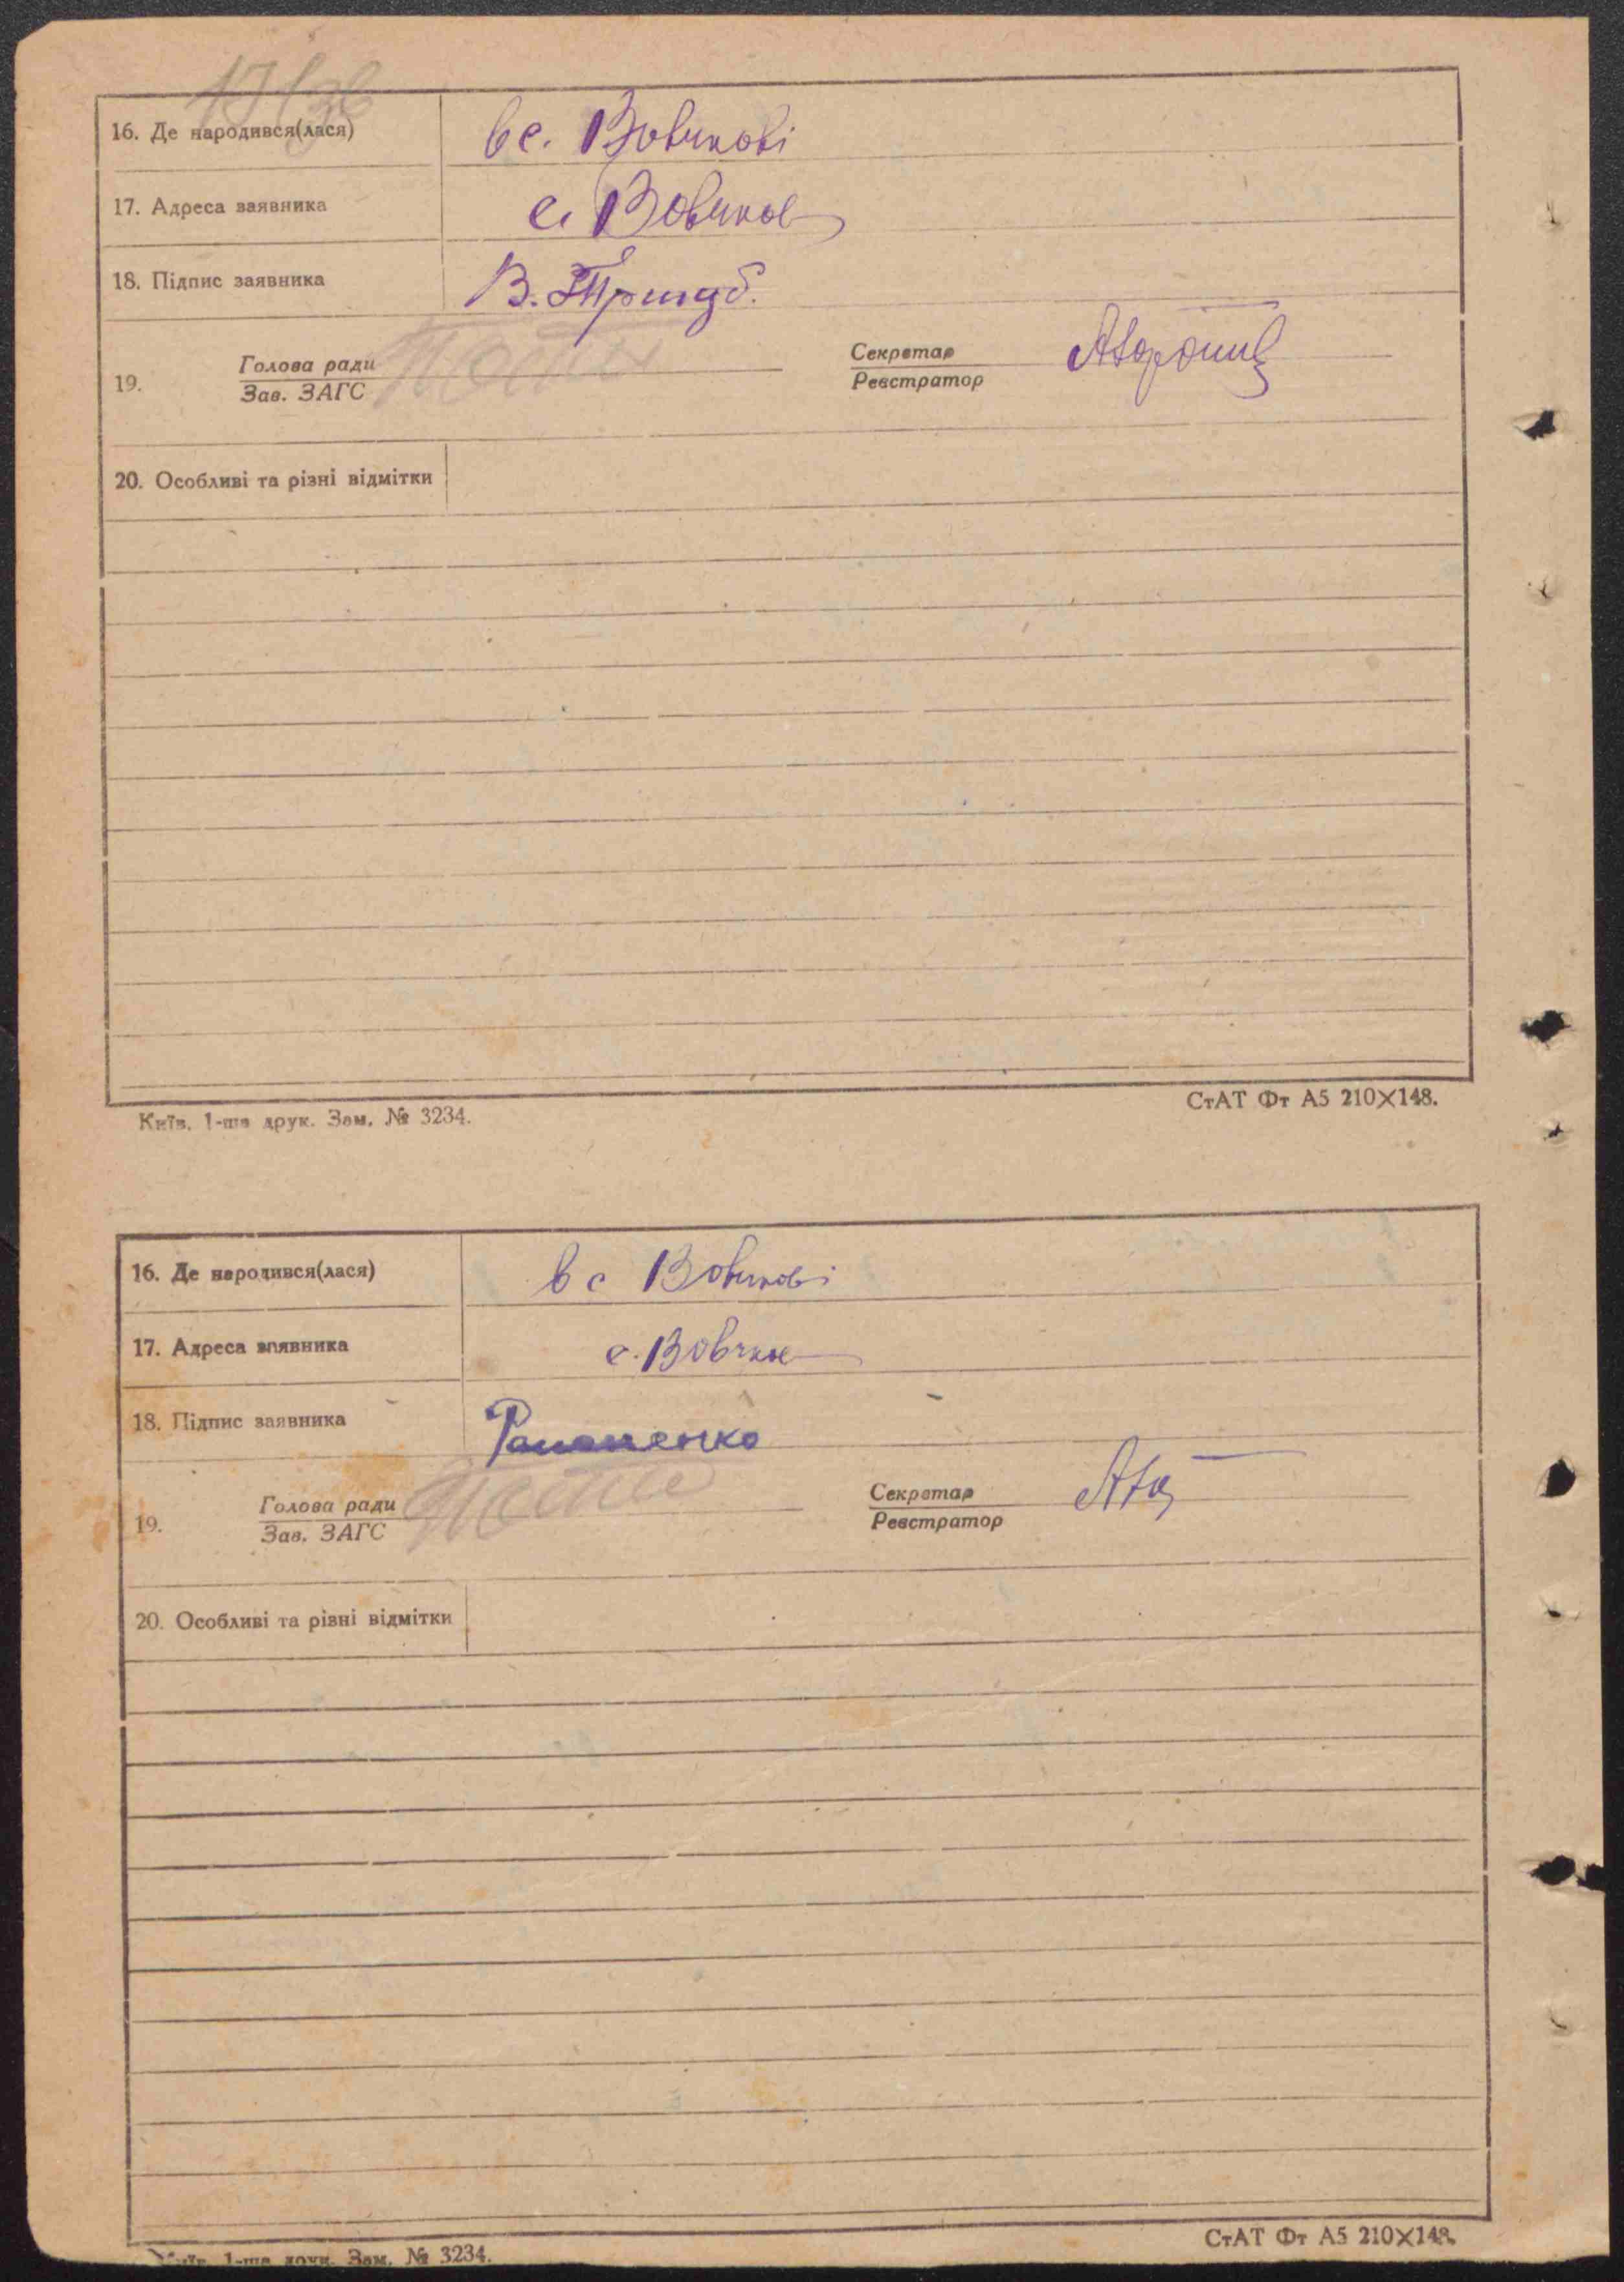 16. Де народився(лася) в с. Вовчкові
17. Адреса заявника с. Вовчков
18. Підпис заявника В.
19. Голова ради Секретар
Зав. ЗАГС Реєстратор
20. Особливі та різні відмітки
Київ, 1-ша друк. Зам. № 3234. СтАТ Фт А5 210×148.
16. Де народився(лася) в с Вовчкові
17. Адреса заявника с. Вовчков
18. Підпис заявника
19. Голова ради Секретар
Зав. ЗАГС Реєстратор
20. Особливі та різні відмітки
Київ, 1-ша друк. Зам. № 3234. СтАТ Фт А5 210×148.